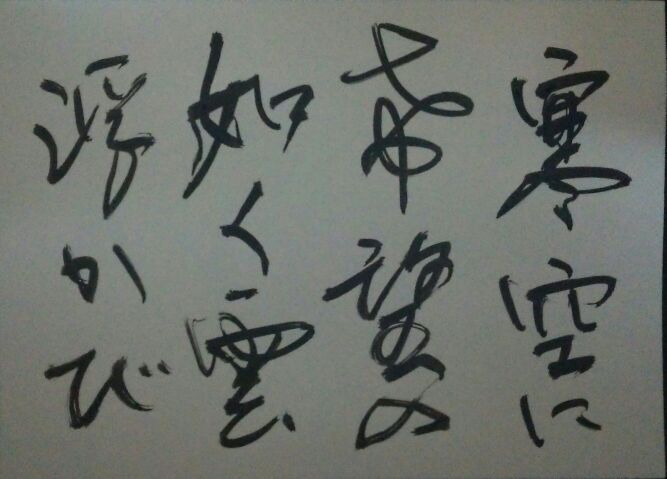 寒空に
希望の
如く雲
浮かび